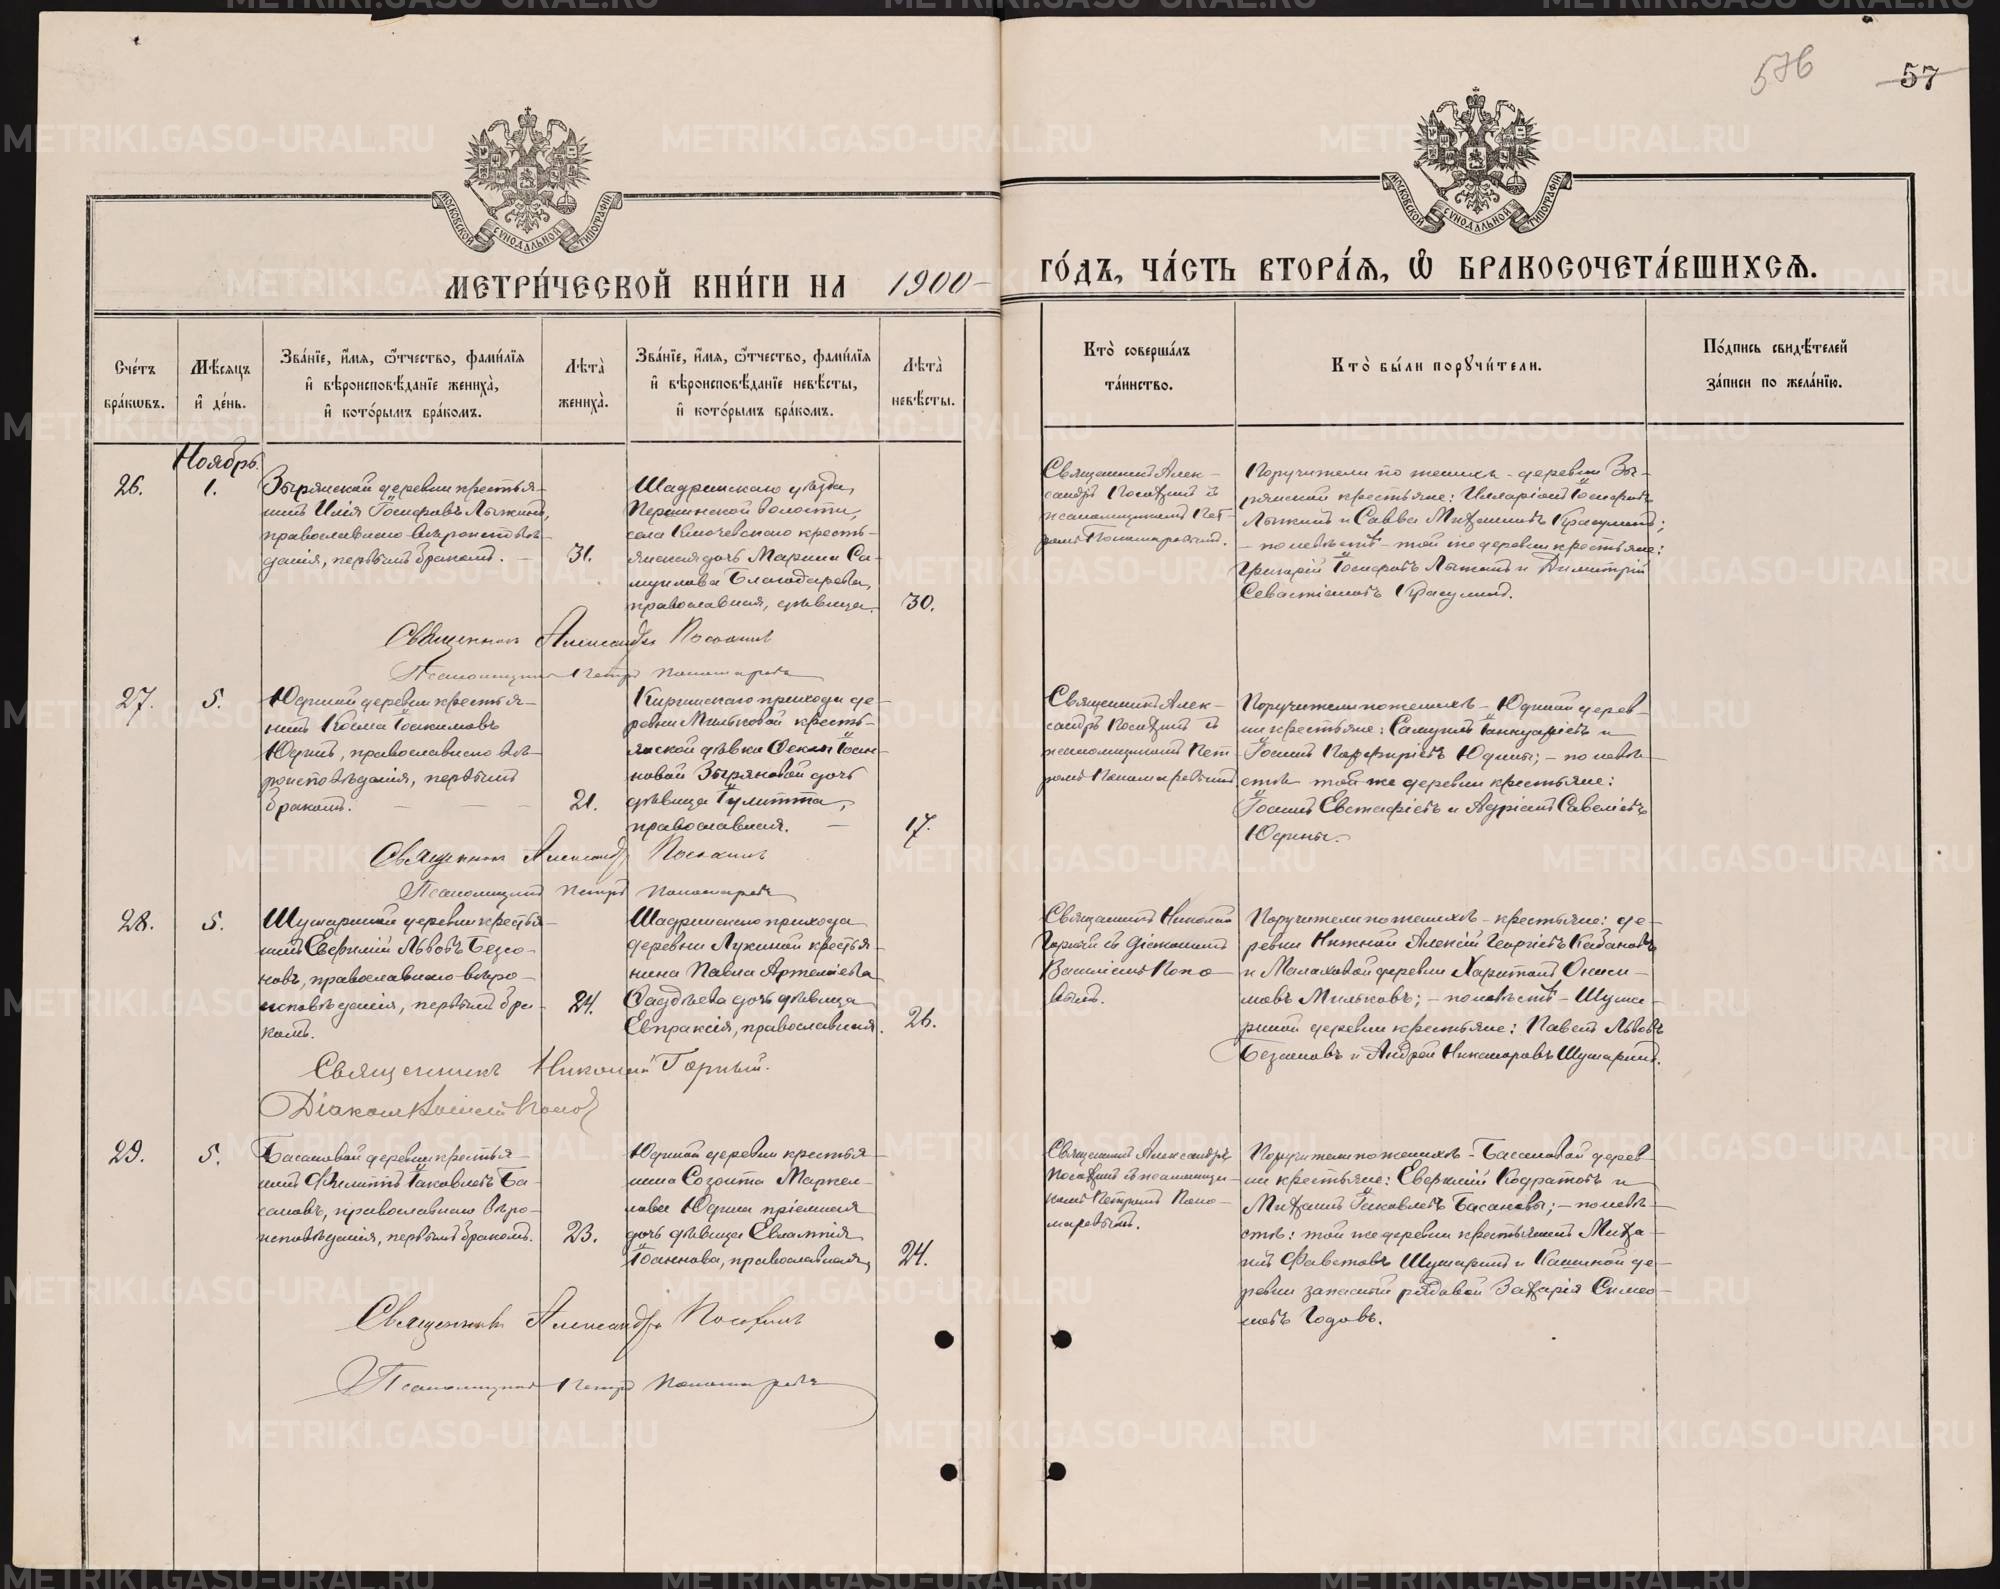 576
57
МЕТРИ́ЧЕСКОЙ КНИ́ГИ НА 1900
ГО́ДЪ, ЧА́СТЬ ВТОРА́Я, Ѽ БРАКОСОЧЕТА́ВШИХСЯ.
МОСКОВСКОЙ СѴНОДАЛЬНОЙ ТИПОГРАФІИ
МОСКОВСКОЙ СѴНОДАЛЬНОЙ ТИПОГРАФІИ
Сче́тъ
бра́кѡвъ.
Мѣ́сяцъ
и҆ де́нь.
Зва́нїе, и҆́мя, ѻ҆́тчество, фами́лїя
и҆ вѣроисповѣ́данїе жениха̀,
и҆ кото́рымъ бра́комъ.
Лѣта̀
жениха̀.
Зва́нїе, и҆́мя, ѻ҆́тчество, фами́лїя
и҆ вѣроисповѣ́данїе невѣ́сты,
и҆ кото́рымъ бра́комъ.
Лѣта̀
невѣ́сты.
Кто̀ соверша́лъ
та́инство.
Кто̀ бы́ли порꙋчи́тели.
По́дпись свидѣ́телей
за́писи по жела́нїю.
Ноябрь.
26.
1.
Зырянской деревни крестья-
нинъ Илія Іосифовъ Лыжинъ,
православнаго вѣроисповѣ-
данія, первымъ бракомъ. —
31.
Шадринскаго уѣзда,
Першинской волости,
села Ключевскаго кресть-
янская дочь Марина Са-
муилова Благодарева,
православная, дѣвица.
30.
Священникъ Алек-
сандръ Посохинъ съ
псаломщикомъ Пет-
ромъ Пономаревымъ.
Поручители по женихѣ - деревни Зы-
рянской крестьяне: Илларіонъ Іосифовъ
Лыжинъ и Савва Михаиловъ Красулинъ;
- по невѣстѣ - той же деревни крестьяне:
Григорій Іосифовъ Лыжинъ и Димитрій
Севастіановъ Красулинъ.
Священникъ Александръ Посохинъ
Псаломщикъ Петръ Пономаревъ
27.
5.
Юдиной деревни крестья-
нинъ Косма Іоакимовъ
Юдинъ, православнаго вѣ-
роисповѣданія, первымъ
бракомъ. — — —
21.
Киргинскаго прихода де-
ревни Мильковой кресть-
янской дѣвки Феклы Іоан-
новой Зыряновой дочь
дѣвица Іулитта,
православная. —
17.
Священникъ Алек-
сандръ Посохинъ съ
псаломщикомъ Пет-
ромъ Пономаревымъ
Поручители по женихѣ - Юдиной дерев-
ни крестьяне: Самуилъ Іаннуаріевъ и
Іоаннъ Порфиріевъ Юдины; - по невѣ-
стѣ той же деревни крестьяне:
Іоаннъ Евстафіевъ и Адріанъ Савеліевъ
Юдины.
Священникъ Александръ Посохинъ
Псаломщикъ Петръ Пономаревъ
28.
5.
Шумариной деревни крестья-
нинъ Евфимій Львовъ Безсо-
новъ, православнаго вѣро-
исповѣданія, первымъ бра-
комъ.
24.
Шадринскаго прихода
деревни Лукиной крестья-
нина Павла Артемьева
Фаддѣева дочь дѣвица
Евпраксія, православная.
26.
Священникъ Николай
Горный съ діакономъ
Василіемъ Попо-
вымъ.
Поручители по женихѣ - крестьяне: де-
ревни Нижной Алексій Георгіевъ Кабановъ
и Малаховой деревни Харитонъ Ониси-
мовъ Мильковъ; - по невѣстѣ - Шума-
риной деревни крестьяне: Павелъ Львовъ
Безсоновъ и Андрей Никаноровъ Шумаринъ.
Священникъ Николай Горный.
Діаконъ Василій Поповъ
29.
5.
Басановой деревни крестья-
нинъ Филиппъ Іаковлевъ Ба-
сановъ, православнаго вѣро-
исповѣданія, первымъ бракомъ.
23.
Юдиной деревни крестья-
нина Созонта Маркел-
лова Юдина пріемная
дочь дѣвица Евлампія
Іоаннова, православная,
24.
Священникъ Александръ
Посохинъ съ псаломщи-
комъ Петромъ Поно-
маревымъ.
Поручители по женихѣ - Басановой дерев-
ни крестьяне: Евфимій Кодратовъ и
Михаилъ Іаковлевъ Басановы; - по невѣ-
стѣ: той же деревни крестьянинъ Миха-
илъ Фавстовъ Шумаринъ и Кашиной де-
ревни запасный рядовой Захарія Симео-
новъ Годовъ.
Священникъ Александръ Посохинъ
Псаломщикъ Петръ Пономаревъ
METRIKI.GASO-URAL.RU